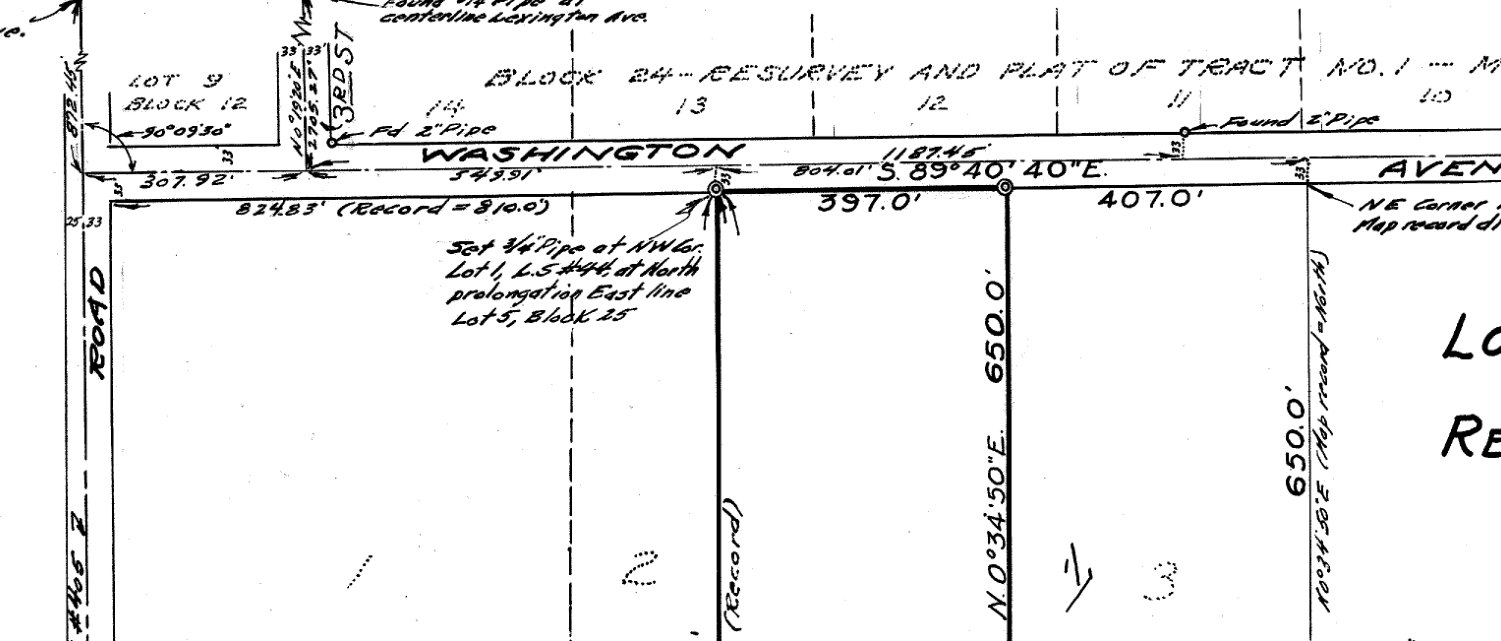 Found 3/4" Pipe at
centerline Lexington Ave.
LOT 9
BLOCK 12
90°09'30"
872.45'
33' 33'
N0°19'20"E
2705.27'
3RD ST
BLOCK 24-RESURVEY AND PLAT OF TRACT NO.1 -- M
14
13
12
11
10
Fd 2" Pipe
Found 2" Pipe
WASHINGTON
AVEN
33'
307.92'
549.91'
1187.45'
804.01'
S.89°40'40"E.
33
33'
33
33
824.83' (Record = 810.0')
397.0'
407.0'
NE Corner
Map record di
25 33
Set 3/4" Pipe at NW Cor.
Lot 1, L.S #44, at North
prolongation East line
Lot 5, Block 25
ROAD
#405
(Record)
650.0'
N.0°34'50"E.
650.0'
N0°34'50"E (Map record = North)
LO
RE
1
2
3